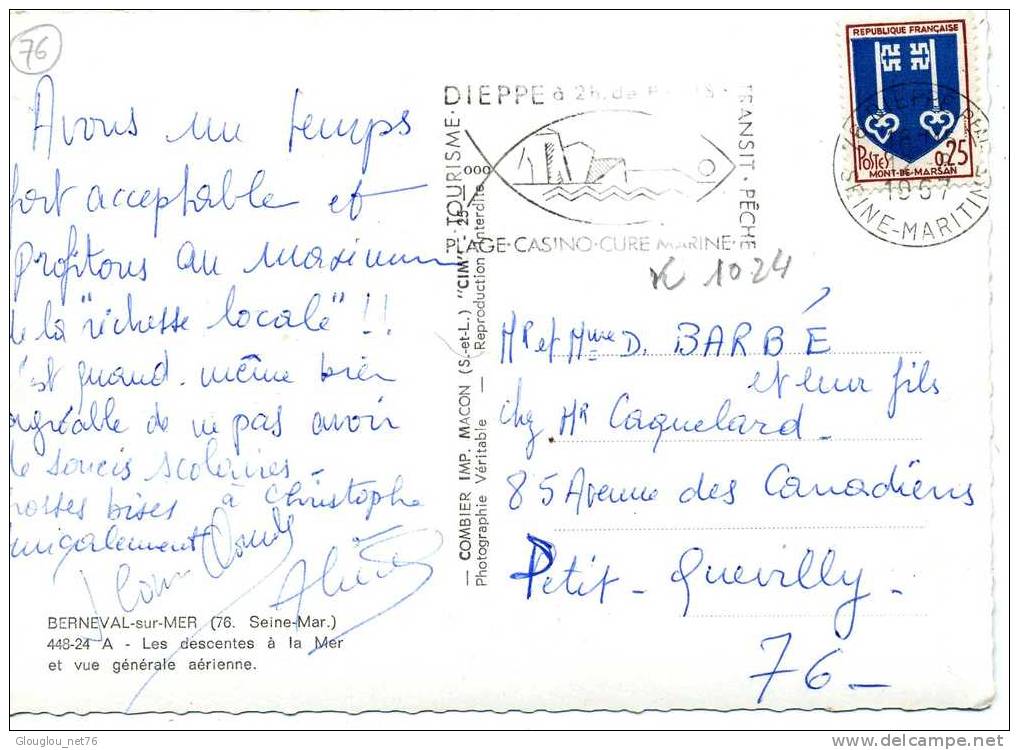 76
Avons un temps
fort acceptable et
profitons au maximum
de la "richesse locale" !!
C'est quand même bien
agréable de ne pas avoir
de soucis scolaires -
Grosses bises à Christophe
Amicalement
BERNEVAL-sur-MER (76. Seine-Mar.)
448-24 A - Les descentes à la Mer
et vue générale aérienne.
— COMBIER IMP. MACON (S.-et-L.) "CIM"
Photographie Véritable — Reproduction Interdite
DIEPPE à 2h. de PARIS
TOURISME · TRANSIT · PÊCHE
PLAGE · CASINO · CURE MARINE ·
REPUBLIQUE FRANÇAISE
POSTES 0,25
MONT-DE-MARSAN
76 DIEPPE
1967
SEINE-MARITIME
1024
Mr et Mme D. BARBÉ
et leur fils
chez Mr Caquelard -
85 Avenue des Canadiens
Petit-Quevilly -
76 -
Glouglou_net76
http://www.delcampe.net